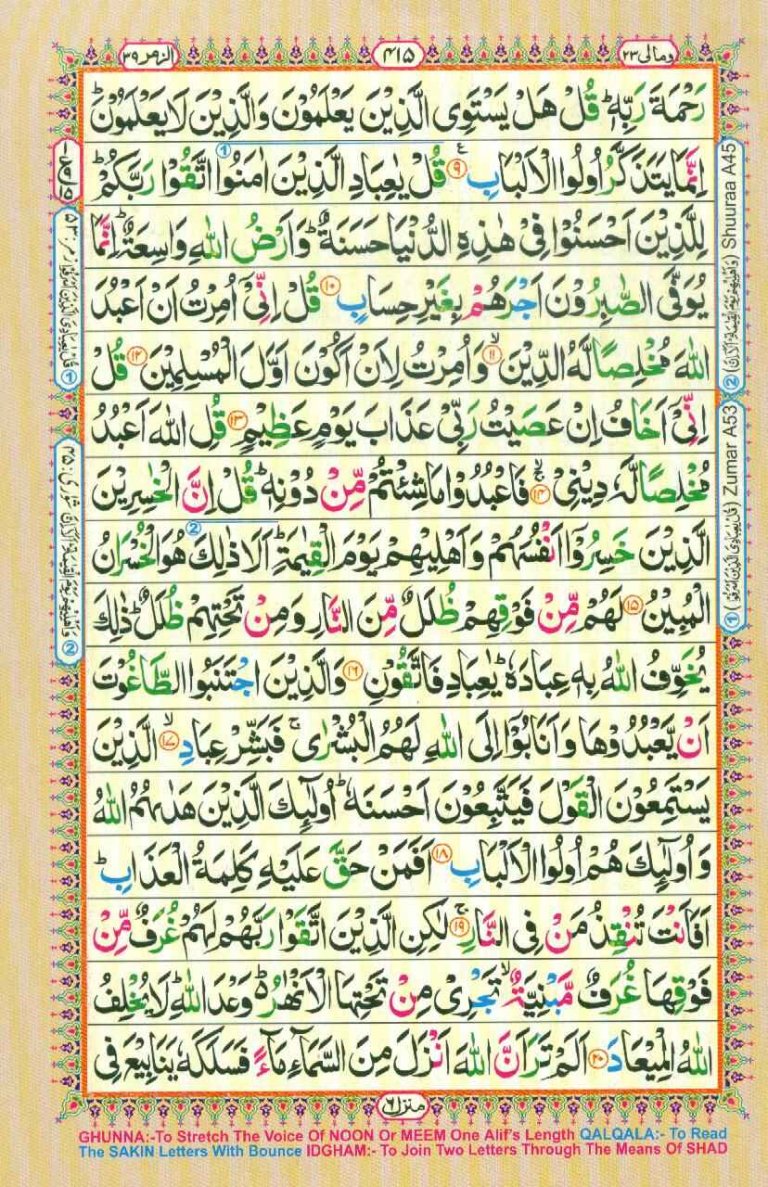 الزمر ٣٩
٤١٥
ومالى ٢٣
رَحْمَةَ رَبِّهٖ ؕ قُلْ هَلْ يَسْتَوِى الَّذِيْنَ يَعْلَمُوْنَ وَالَّذِيْنَ لَا يَعْلَمُوْنَ ؕ
اِنَّمَا يَتَذَكَّرُ اُولُوا الْاَلْبَابِ ﴿٩﴾ قُلْ يٰعِبَادِ الَّذِيْنَ اٰمَنُوا اتَّقُوْا رَبَّكُمْ ؕ
لِلَّذِيْنَ اَحْسَنُوْا فِىْ هٰذِهِ الدُّنْيَا حَسَنَةٌ ؕ وَاَرْضُ اللّٰهِ وَاسِعَةٌ ؕ اِنَّمَا
يُوَفَّى الصّٰبِرُوْنَ اَجْرَهُمْ بِغَيْرِ حِسَابٍ ﴿١٠﴾ قُلْ اِنِّىْۤ اُمِرْتُ اَنْ اَعْبُدَ
اللّٰهَ مُخْلِصًا لَّهُ الدِّيْنَ ﴿١١﴾ وَاُمِرْتُ لِاَنْ اَكُوْنَ اَوَّلَ الْمُسْلِمِيْنَ ﴿١٢﴾ قُلْ
اِنِّىْۤ اَخَافُ اِنْ عَصَيْتُ رَبِّىْ عَذَابَ يَوْمٍ عَظِيْمٍ ﴿١٣﴾ قُلِ اللّٰهَ اَعْبُدُ
مُخْلِصًا لَّهٗ دِيْنِىْ ﴿١٤﴾ فَاعْبُدُوْا مَا شِئْتُمْ مِّنْ دُوْنِهٖ ؕ قُلْ اِنَّ الْخٰسِرِيْنَ
الَّذِيْنَ خَسِرُوْۤا اَنْفُسَهُمْ وَاَهْلِيْهِمْ يَوْمَ الْقِيٰمَةِ ؕ اَلَا ذٰلِكَ هُوَ الْخُسْرَانُ
الْمُبِيْنُ ﴿١٥﴾ لَهُمْ مِّنْ فَوْقِهِمْ ظُلَلٌ مِّنَ النَّارِ وَمِنْ تَحْتِهِمْ ظُلَلٌ ؕ ذٰلِكَ
يُخَوِّفُ اللّٰهُ بِهٖ عِبَادَهٗ ؕ يٰعِبَادِ فَاتَّقُوْنِ ﴿١٦﴾ وَالَّذِيْنَ اجْتَنَبُوا الطَّاغُوْتَ
اَنْ يَّعْبُدُوْهَا وَاَنَابُوْۤا اِلَى اللّٰهِ لَهُمُ الْبُشْرٰى ۚ فَبَشِّرْ عِبَادِ ﴿١٧﴾ الَّذِيْنَ
يَسْتَمِعُوْنَ الْقَوْلَ فَيَتَّبِعُوْنَ اَحْسَنَهٗ ؕ اُولٰٓئِكَ الَّذِيْنَ هَدٰىهُمُ اللّٰهُ
وَاُولٰٓئِكَ هُمْ اُولُوا الْاَلْبَابِ ﴿١٨﴾ اَفَمَنْ حَقَّ عَلَيْهِ كَلِمَةُ الْعَذَابِ ؕ
اَفَاَنْتَ تُنْقِذُ مَنْ فِى النَّارِ ﴿١٩﴾ لٰكِنِ الَّذِيْنَ اتَّقَوْا رَبَّهُمْ لَهُمْ غُرَفٌ مِّنْ
فَوْقِهَا غُرَفٌ مَّبْنِيَّةٌ ۙ تَجْرِىْ مِنْ تَحْتِهَا الْاَنْهٰرُ ؕ وَعْدَ اللّٰهِ ؕ لَا يُخْلِفُ
اللّٰهُ الْمِيْعَادَ ﴿٢٠﴾ اَلَمْ تَرَ اَنَّ اللّٰهَ اَنْزَلَ مِنَ السَّمَآءِ مَآءً فَسَلَكَهٗ يَنَابِيْعَ فِى
منزل ٦
② Shuuraa A45
① Zumar A53
GHUNNA:-To Stretch The Voice Of NOON Or MEEM One Alif's Length QALQALA:- To Read
The SAKIN Letters With Bounce IDGHAM:- To Join Two Letters Through The Means Of SHAD